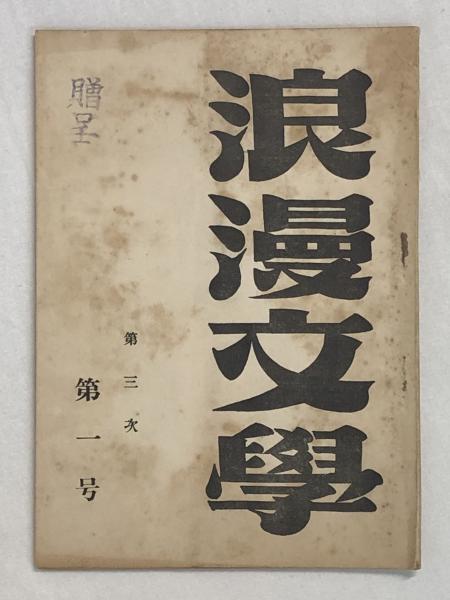 浪漫文學
第三次
第一号
贈呈